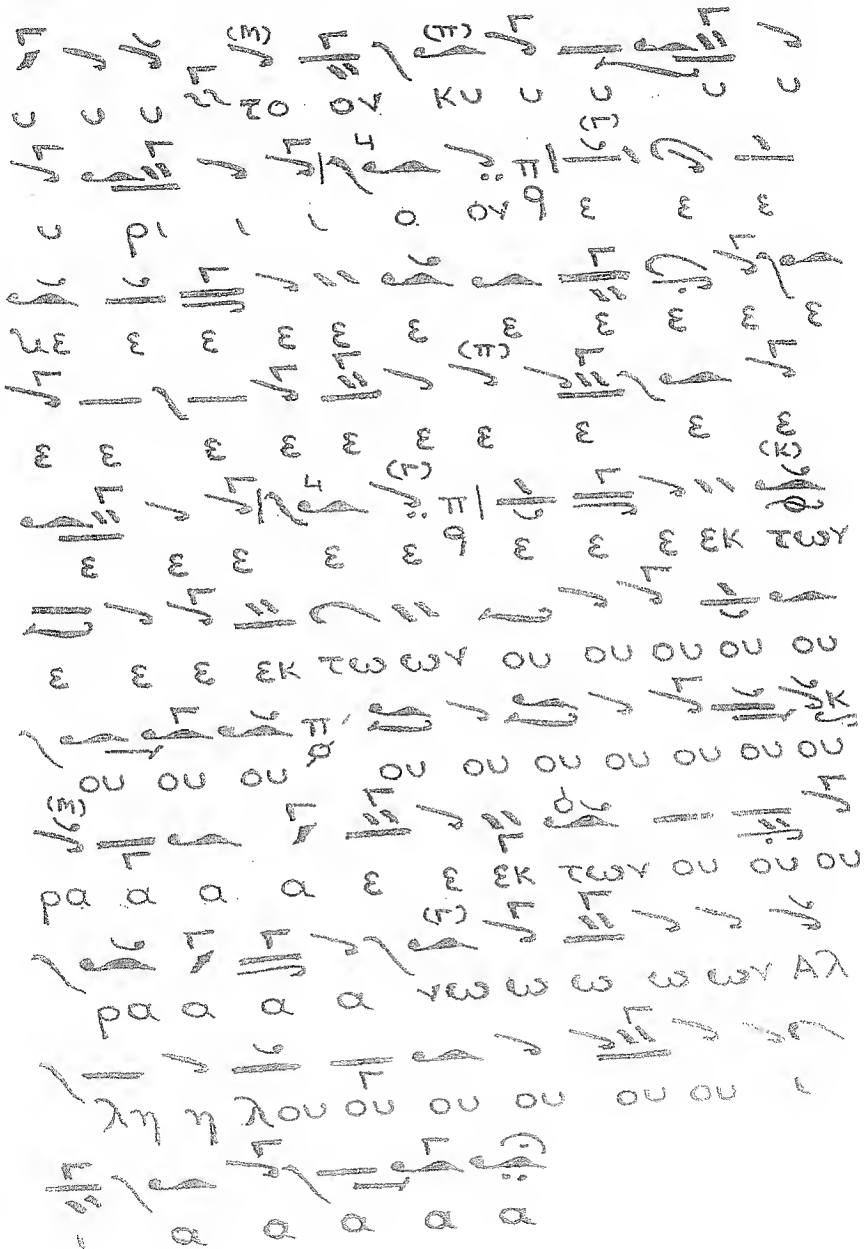 υ υ υ το ον κυ υ υ υ υ
υ ρι ι ι ο ον π ε ε ε
ε ε ε ε ε ε ε ε ε ε
ε ε ε ε ε ε ε ε ε ε
ε ε ε ε ε π ε ε ε εκ των
ε ε ε εκ τω ων ου ου ου ου ου
ου ου ου π ου ου ου ου ου ου ου
ρα α α α ε ε εκ των ου ου ου
ρα α α α νω ω ω ω ων Αλ
λη η λου ου ου ου ου ου ι
ι α α α α α